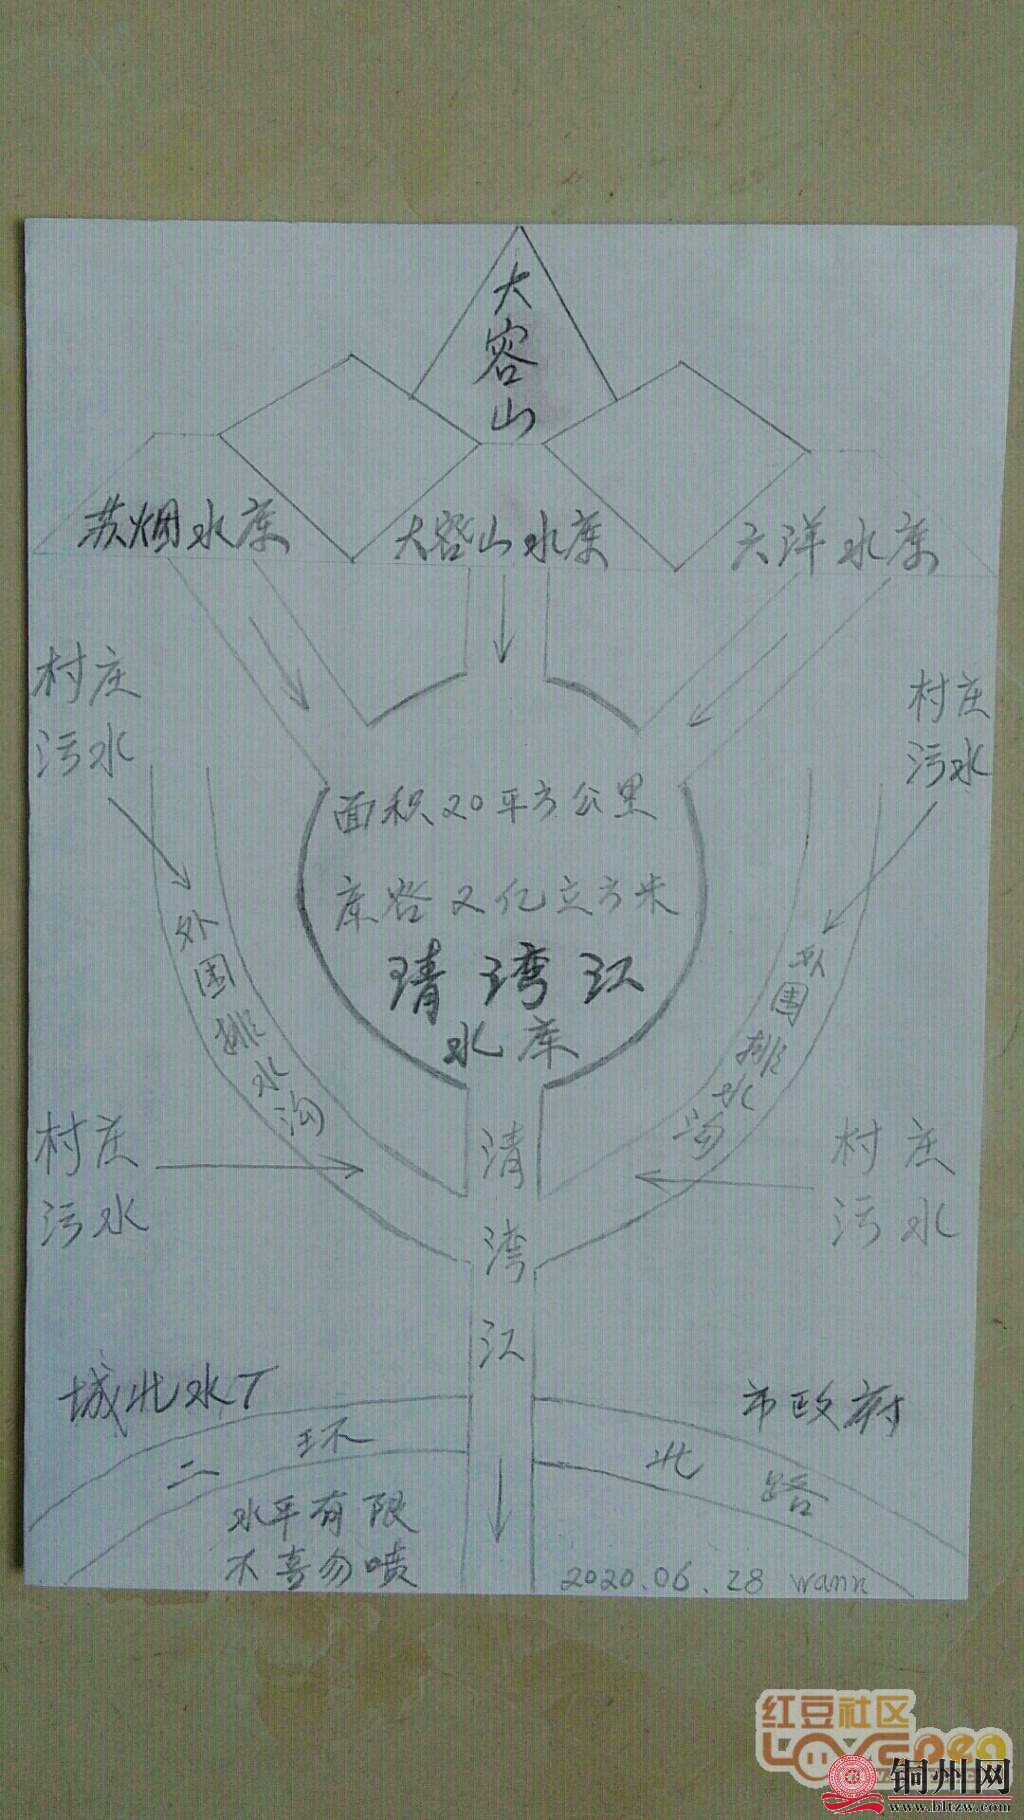 大容山
苏烟水库
大容山水库
六洋水库
村庄
污水
村庄
污水
面积20平方公里
库容2亿立方米
清湾江
水库
外围排水沟
外围排水沟
村庄
污水
清湾江
村庄
污水
城北水厂
市政府
二环北路
水平有限
不喜勿喷
2020.06.28 wann
红豆社区
LOVEpea
铜州网
www.bltzw.com